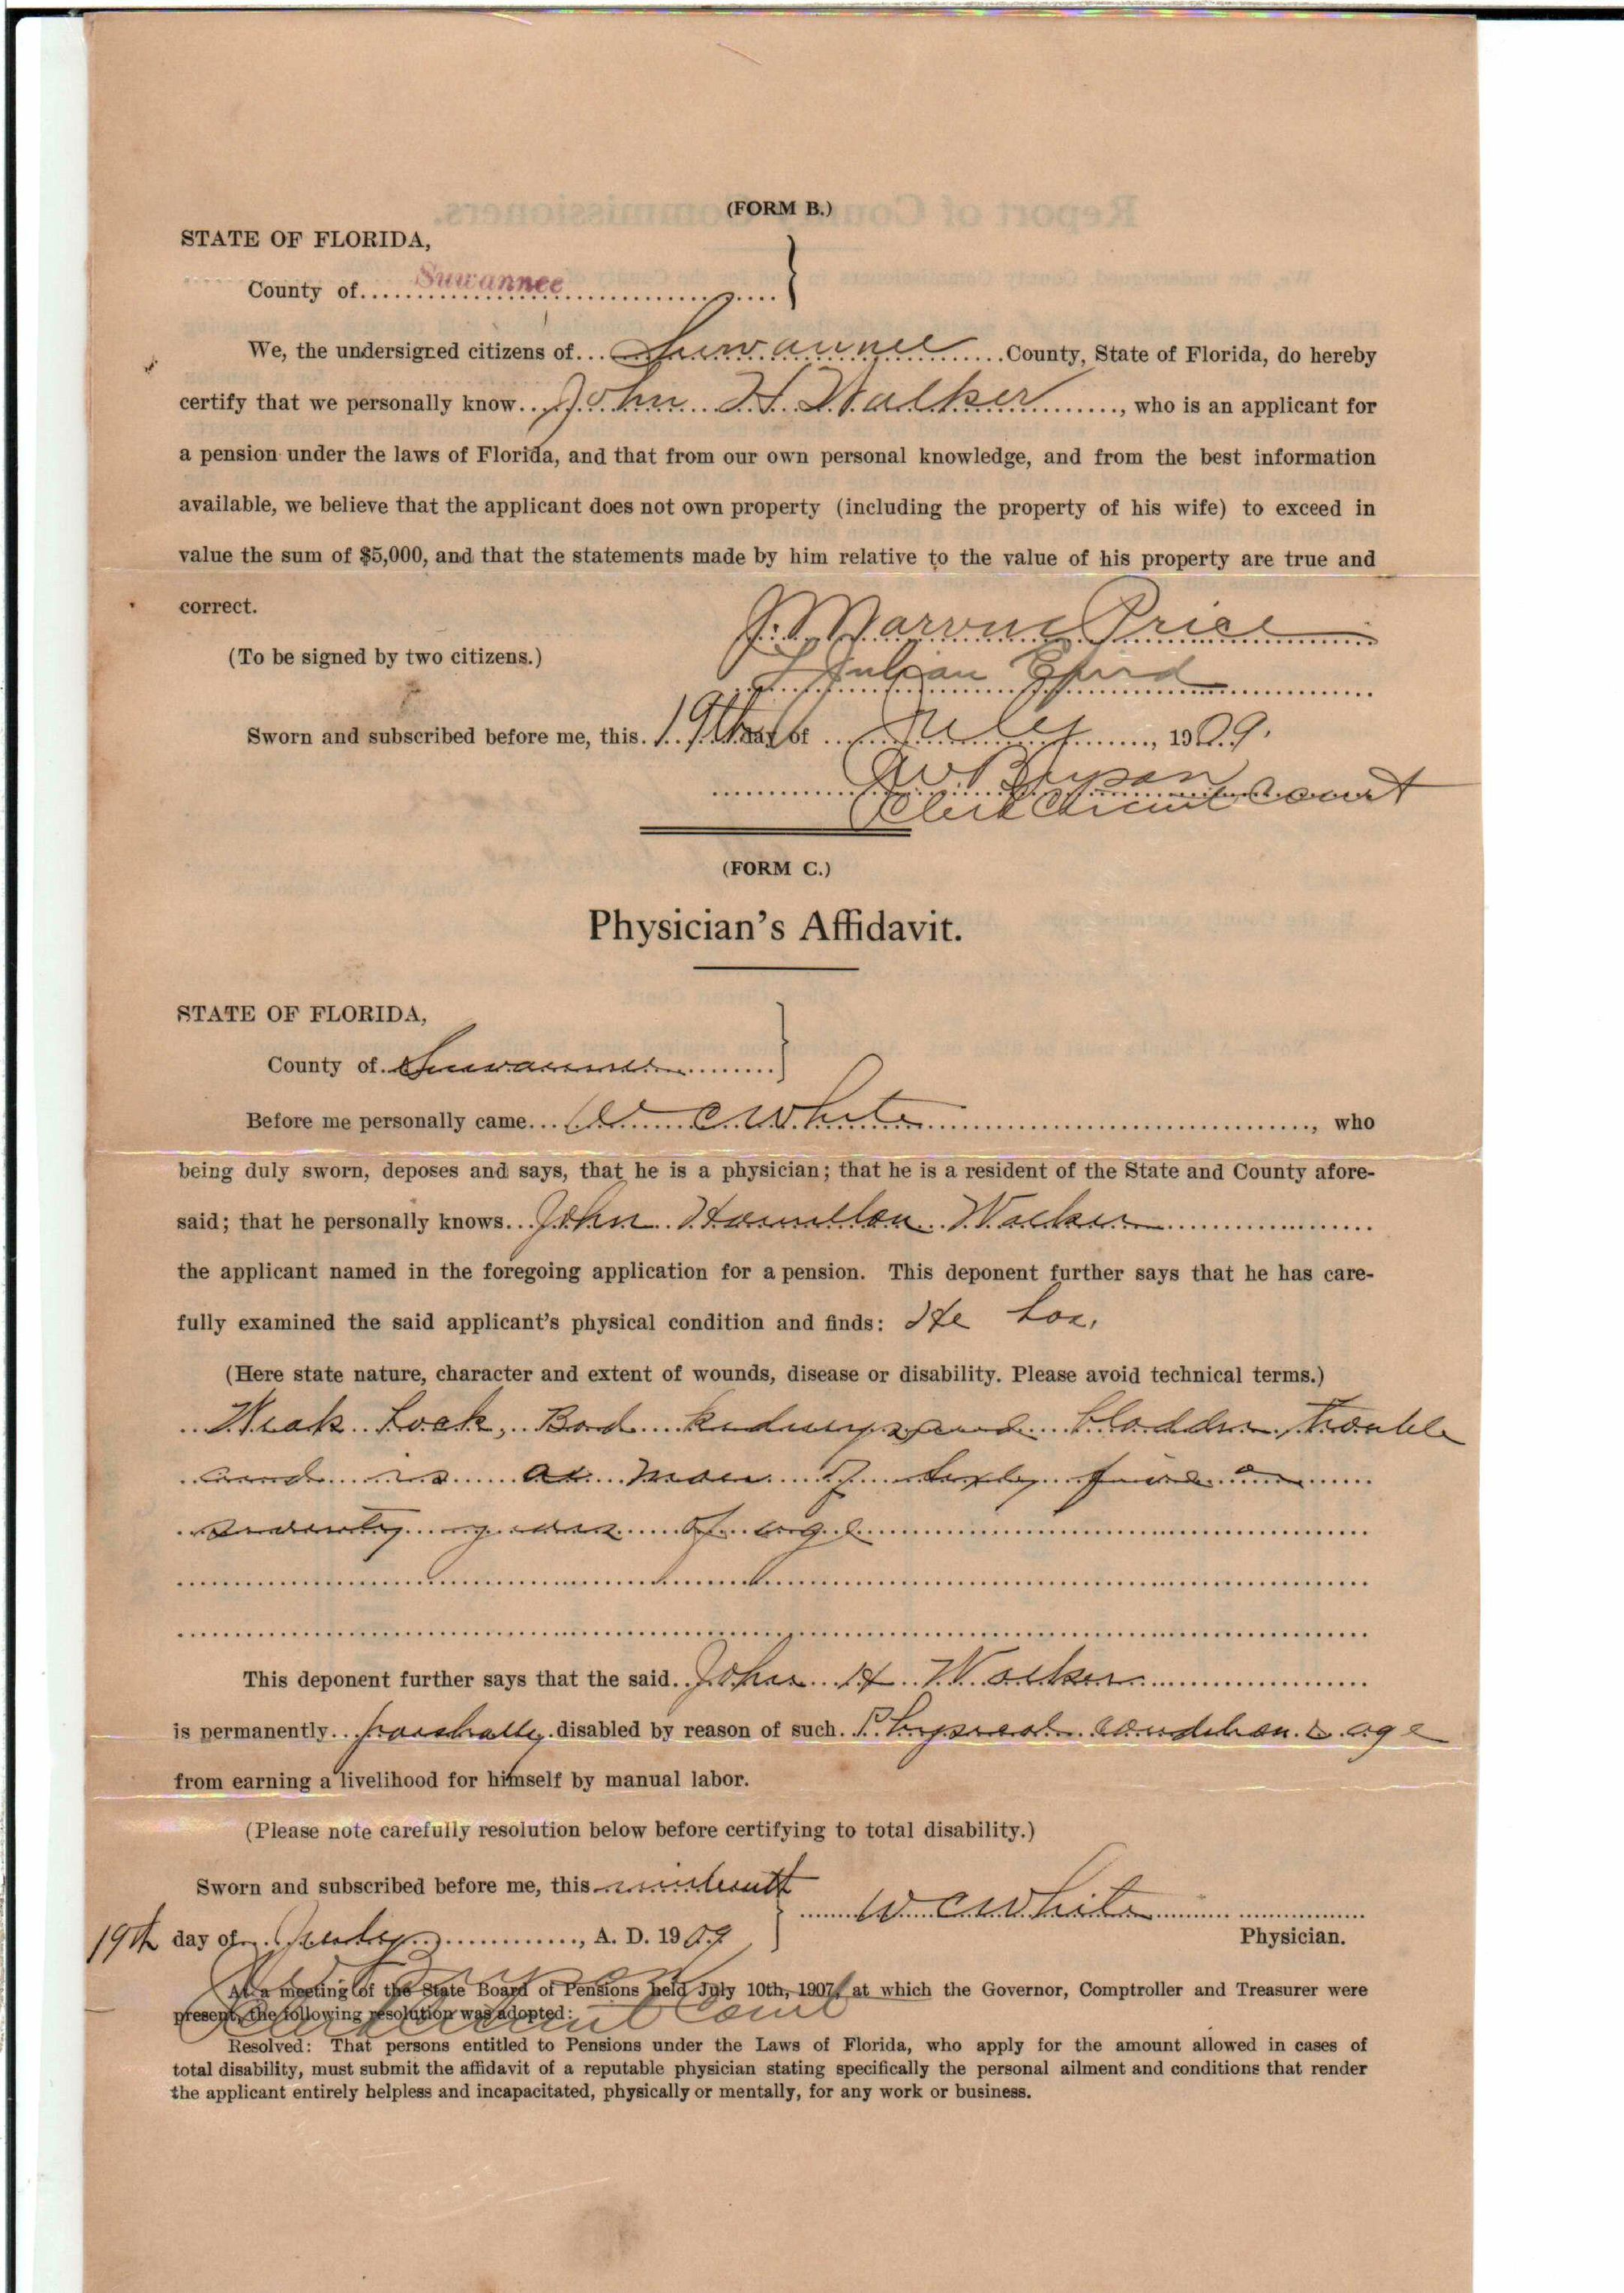 (FORM B.)
STATE OF FLORIDA,
County of Suwannee
We, the undersigned citizens of Suwannee County, State of Florida, do hereby
certify that we personally know John H. Walker, who is an applicant for
a pension under the laws of Florida, and that from our own personal knowledge, and from the best information
available, we believe that the applicant does not own property (including the property of his wife) to exceed in
value the sum of $5,000, and that the statements made by him relative to the value of his property are true and
correct.
J. Marvin Price
(To be signed by two citizens.)
Julian
Sworn and subscribed before me, this 19th day of July, 1909.
Bryson
Clerk Circuit Court
(FORM C.)
Physician's Affidavit.
STATE OF FLORIDA,
County of Suwannee
Before me personally came W C White, who
being duly sworn, deposes and says, that he is a physician; that he is a resident of the State and County afore-
said; that he personally knows John Hamilton Walker
the applicant named in the foregoing application for a pension. This deponent further says that he has care-
fully examined the said applicant's physical condition and finds: He has,
(Here state nature, character and extent of wounds, disease or disability. Please avoid technical terms.)
Weak back, Bad kidneys and bladder trouble
and is a man of sixty five or
seventy years of age
This deponent further says that the said John H Walker
is permanently partially disabled by reason of such Physical condition & age
from earning a livelihood for himself by manual labor.
(Please note carefully resolution below before certifying to total disability.)
Sworn and subscribed before me, this nineteenth
W C White
19th day of July, A. D. 1909
Physician.
At a meeting of the State Board of Pensions held July 10th, 1907, at which the Governor, Comptroller and Treasurer were
present, the following resolution was adopted:
Clerk Circuit Court
Resolved: That persons entitled to Pensions under the Laws of Florida, who apply for the amount allowed in cases of
total disability, must submit the affidavit of a reputable physician stating specifically the personal ailment and conditions that render
the applicant entirely helpless and incapacitated, physically or mentally, for any work or business.